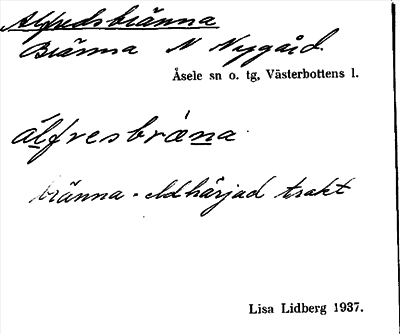 Alfredsbränna
Bränna N Nygård.
Åsele sn o. tg, Västerbottens l.
álfresbræ̀na
bränna - eldhärjad trakt
Lisa Lidberg 1937.